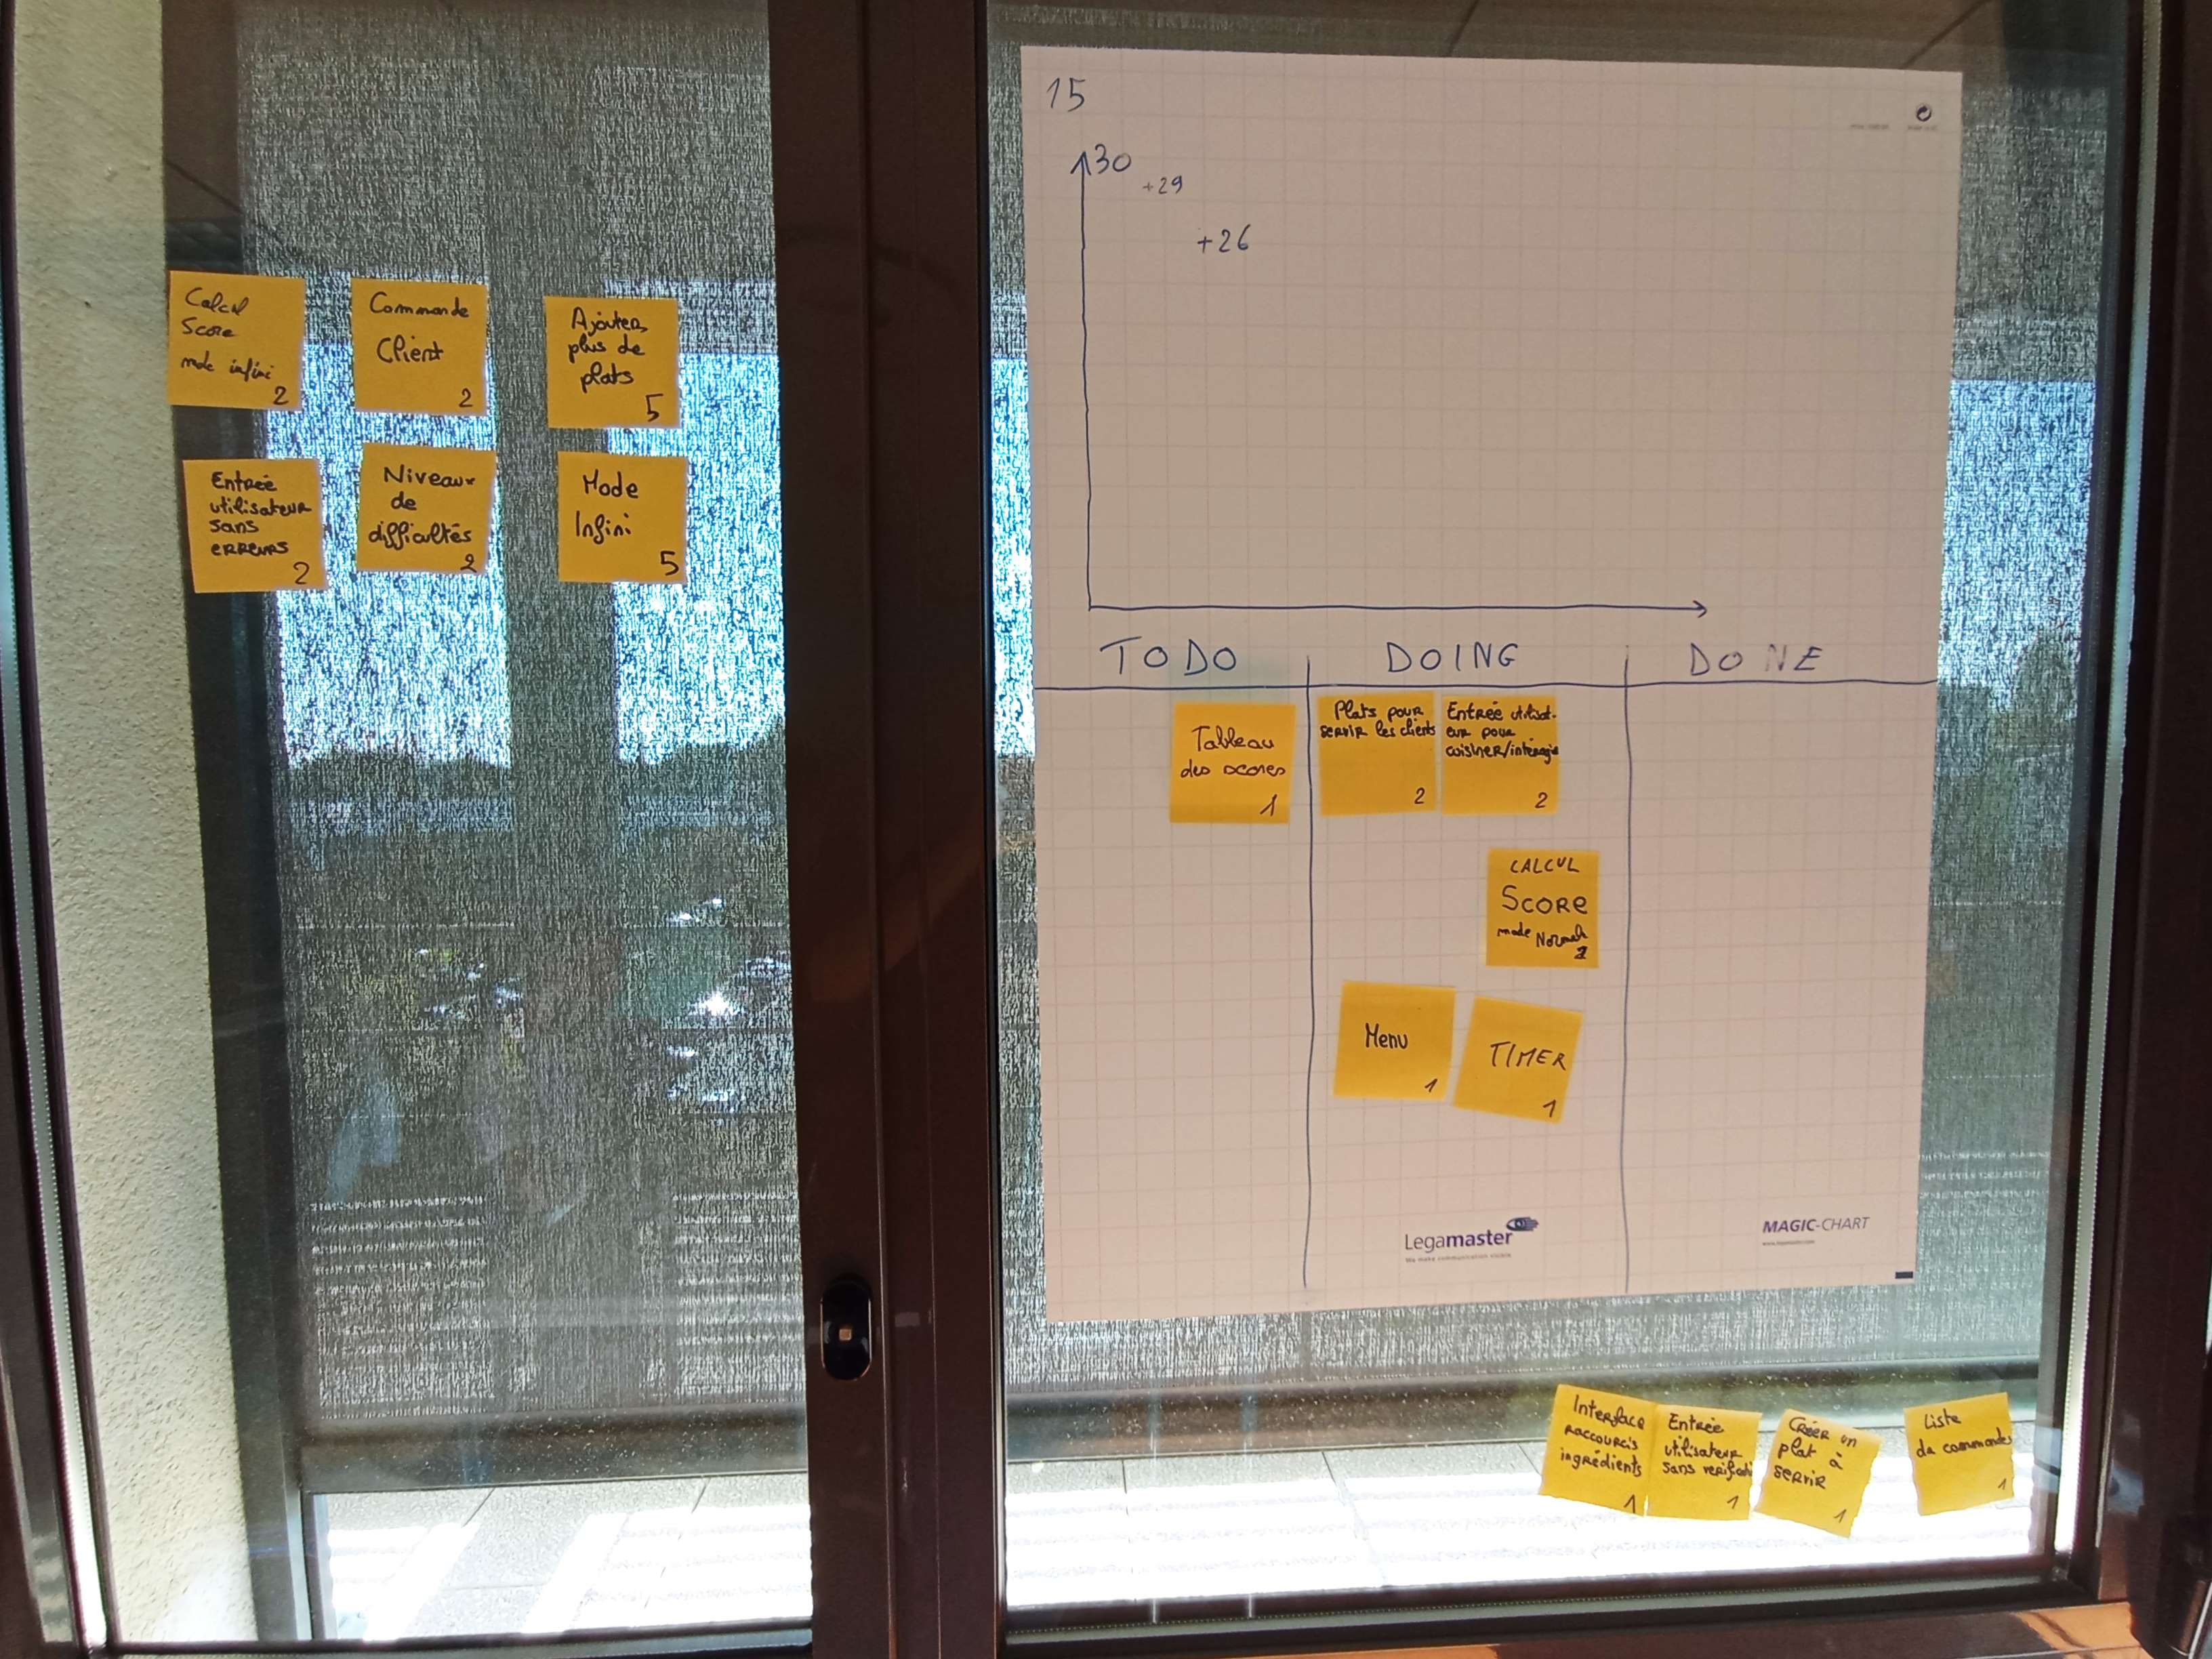 Calcul
Score
mode infini
2
Commande
Client
2
Ajouter
plus de
plats
5
Entrée
utilisateur
sans
erreurs
2
Niveaux
de
difficultés
2
Mode
Infini
5
15
30
+29
+26
TO DO
DOING
DONE
Tableau
des scores
1
Plats pour
servir les clients
2
Entrée utilisat-
eur pour
cuisiner/interagir
2
CALCUL
SCORE
mode Normal
Menu
1
TIMER
1
Legamaster
We make communication visible
MAGIC-CHART
www.legamaster.com
Interface
raccourcis
ingrédients
1
Entrée
utilisateur
sans
1
Créer un
plat à
servir
1
Liste
de commandes
1